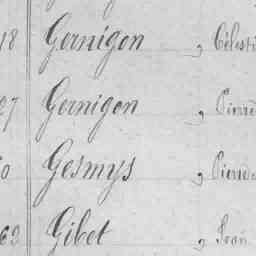 18 Gernigon , Célesti
27 Gernigon , Pierre
0 Gesmys , Pierre
62 Gibet , Jean